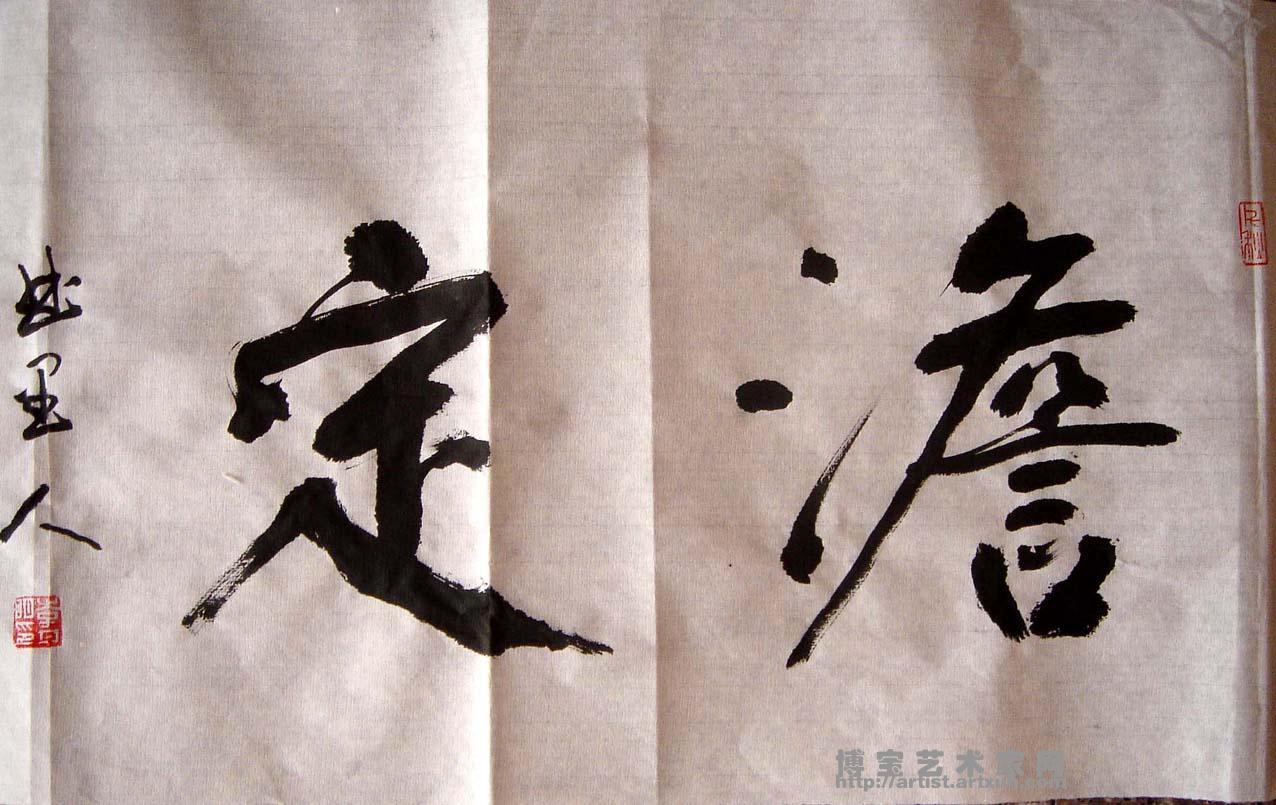 澹定
墨人
博宝艺术家网
http://artist.artxun.com